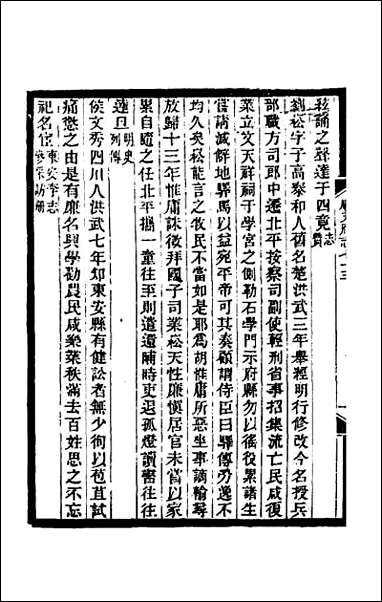 絃誦之聲達于四竟舊志
劉崧字子高泰和人舊名楚洪武三年舉經明行修改今名授兵
部職方司郎中遷北平按察司副使輕刑省事招集流亡民咸復
業立文天祥祠于學宮之側勒石學門示府縣勿以徭役累諸生
嘗請減僻地驛馬以益宛平帝可其奏顧謂侍臣曰驛傳勞逸不
均久矣崧能言之牧民不當如是耶爲胡惟庸所惡坐事謫輸尋
放歸十三年惟庸誅徵拜國子司業崧天性廉慎居官未嘗以家
累自隨之任北平攜一童往至則遣還晡時吏退孤燈讀書往往
達旦明史列傳
侯文秀四川人洪武七年知東安縣有健訟者無少徇以苞苴試
痛懲之由是有廉名興學勸農民咸樂業秩滿去百姓思之不忘
祀名宦東安李志參采訪冊
順天府志七十三